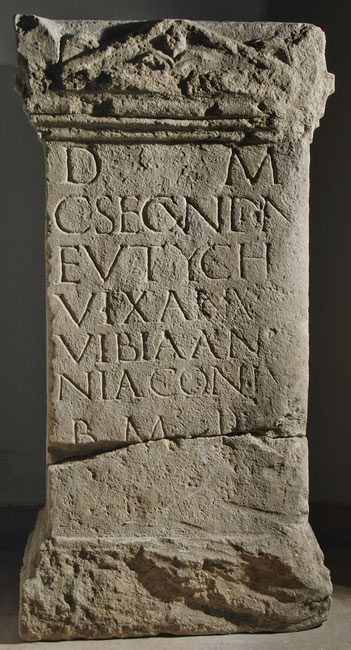 D M
C SECVNDIN
EVTYCH
VIX AN
VIBIA AN
NIA CONI
B M P